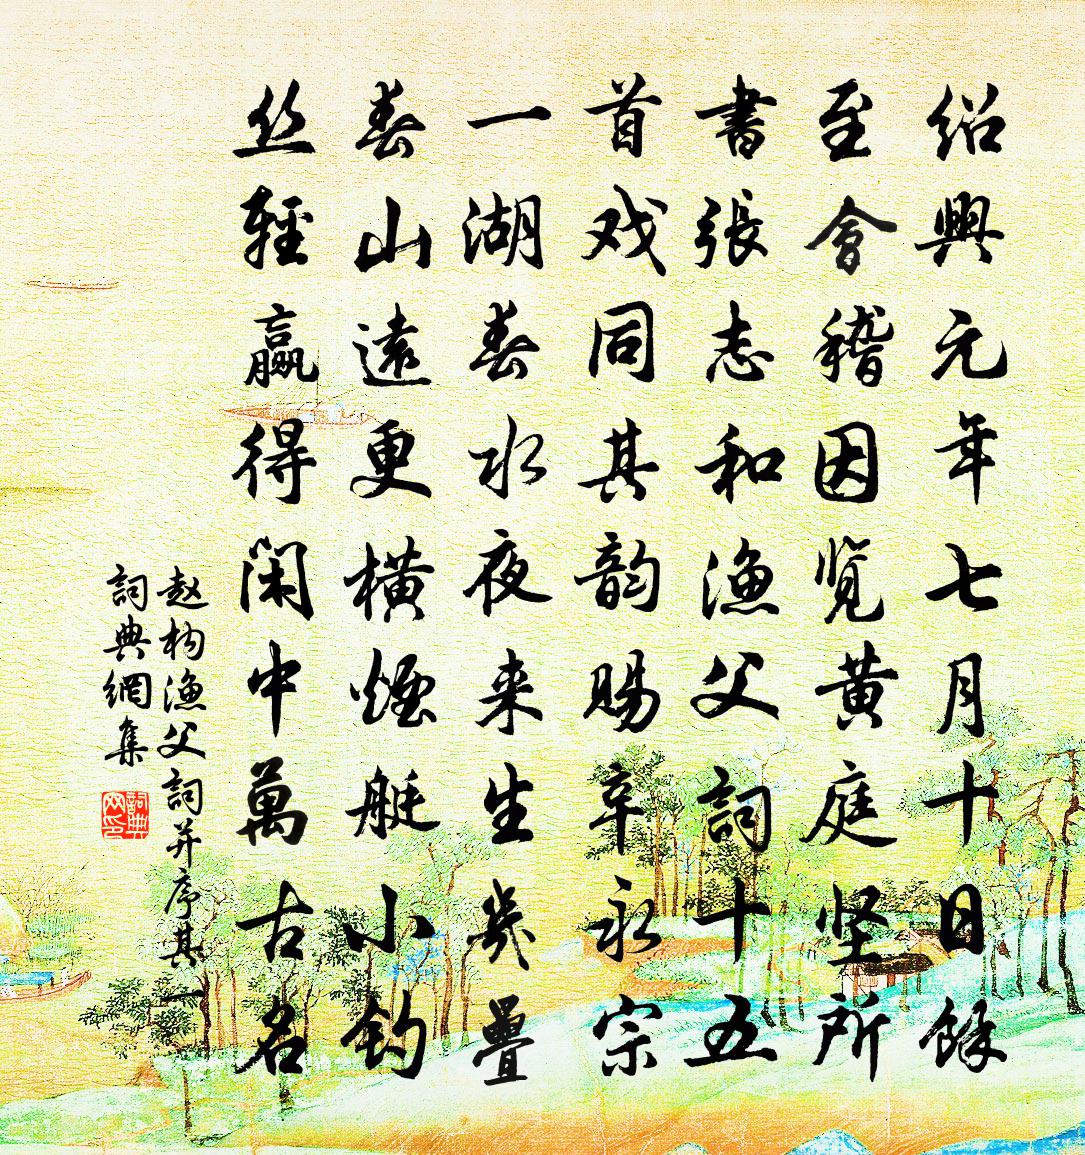 绍興元年七月十日餘
至會稽因览黄庭坚所
書張志和渔父詞十五
首戏同其韵赐辛永宗
一湖春水夜来生幾疊
春山遠更橫煙艇小钓
丝輕赢得闲中萬古名
赵构渔父詞并序其一
詞典網集